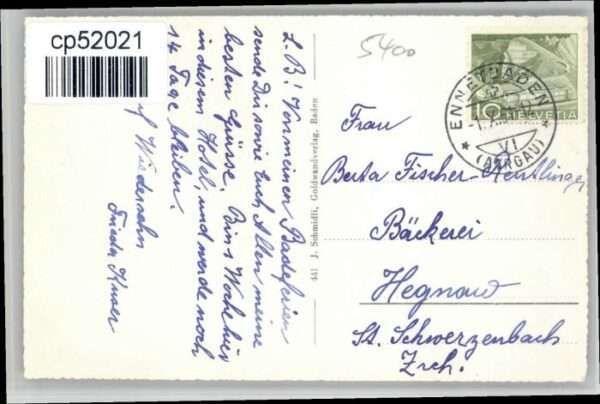 cp52021
5400
L. B! Von meinen Badeferien
sende Dir sowie Euch Allen meine
besten Grüsse. Bin 1 Woche hier
in diesem Hotel, und werde noch
14 Tage bleiben.
Auf Wiedersehn
Frieda
441 J. Schmidli, Goldwandverlag, Baden
ENNETBADEN
VI
(AARGAU)
10 HELVETIA
Frau
Berta Fischer-
Bäckerei
Hegnau
St. Schwerzenbach
Zrch.